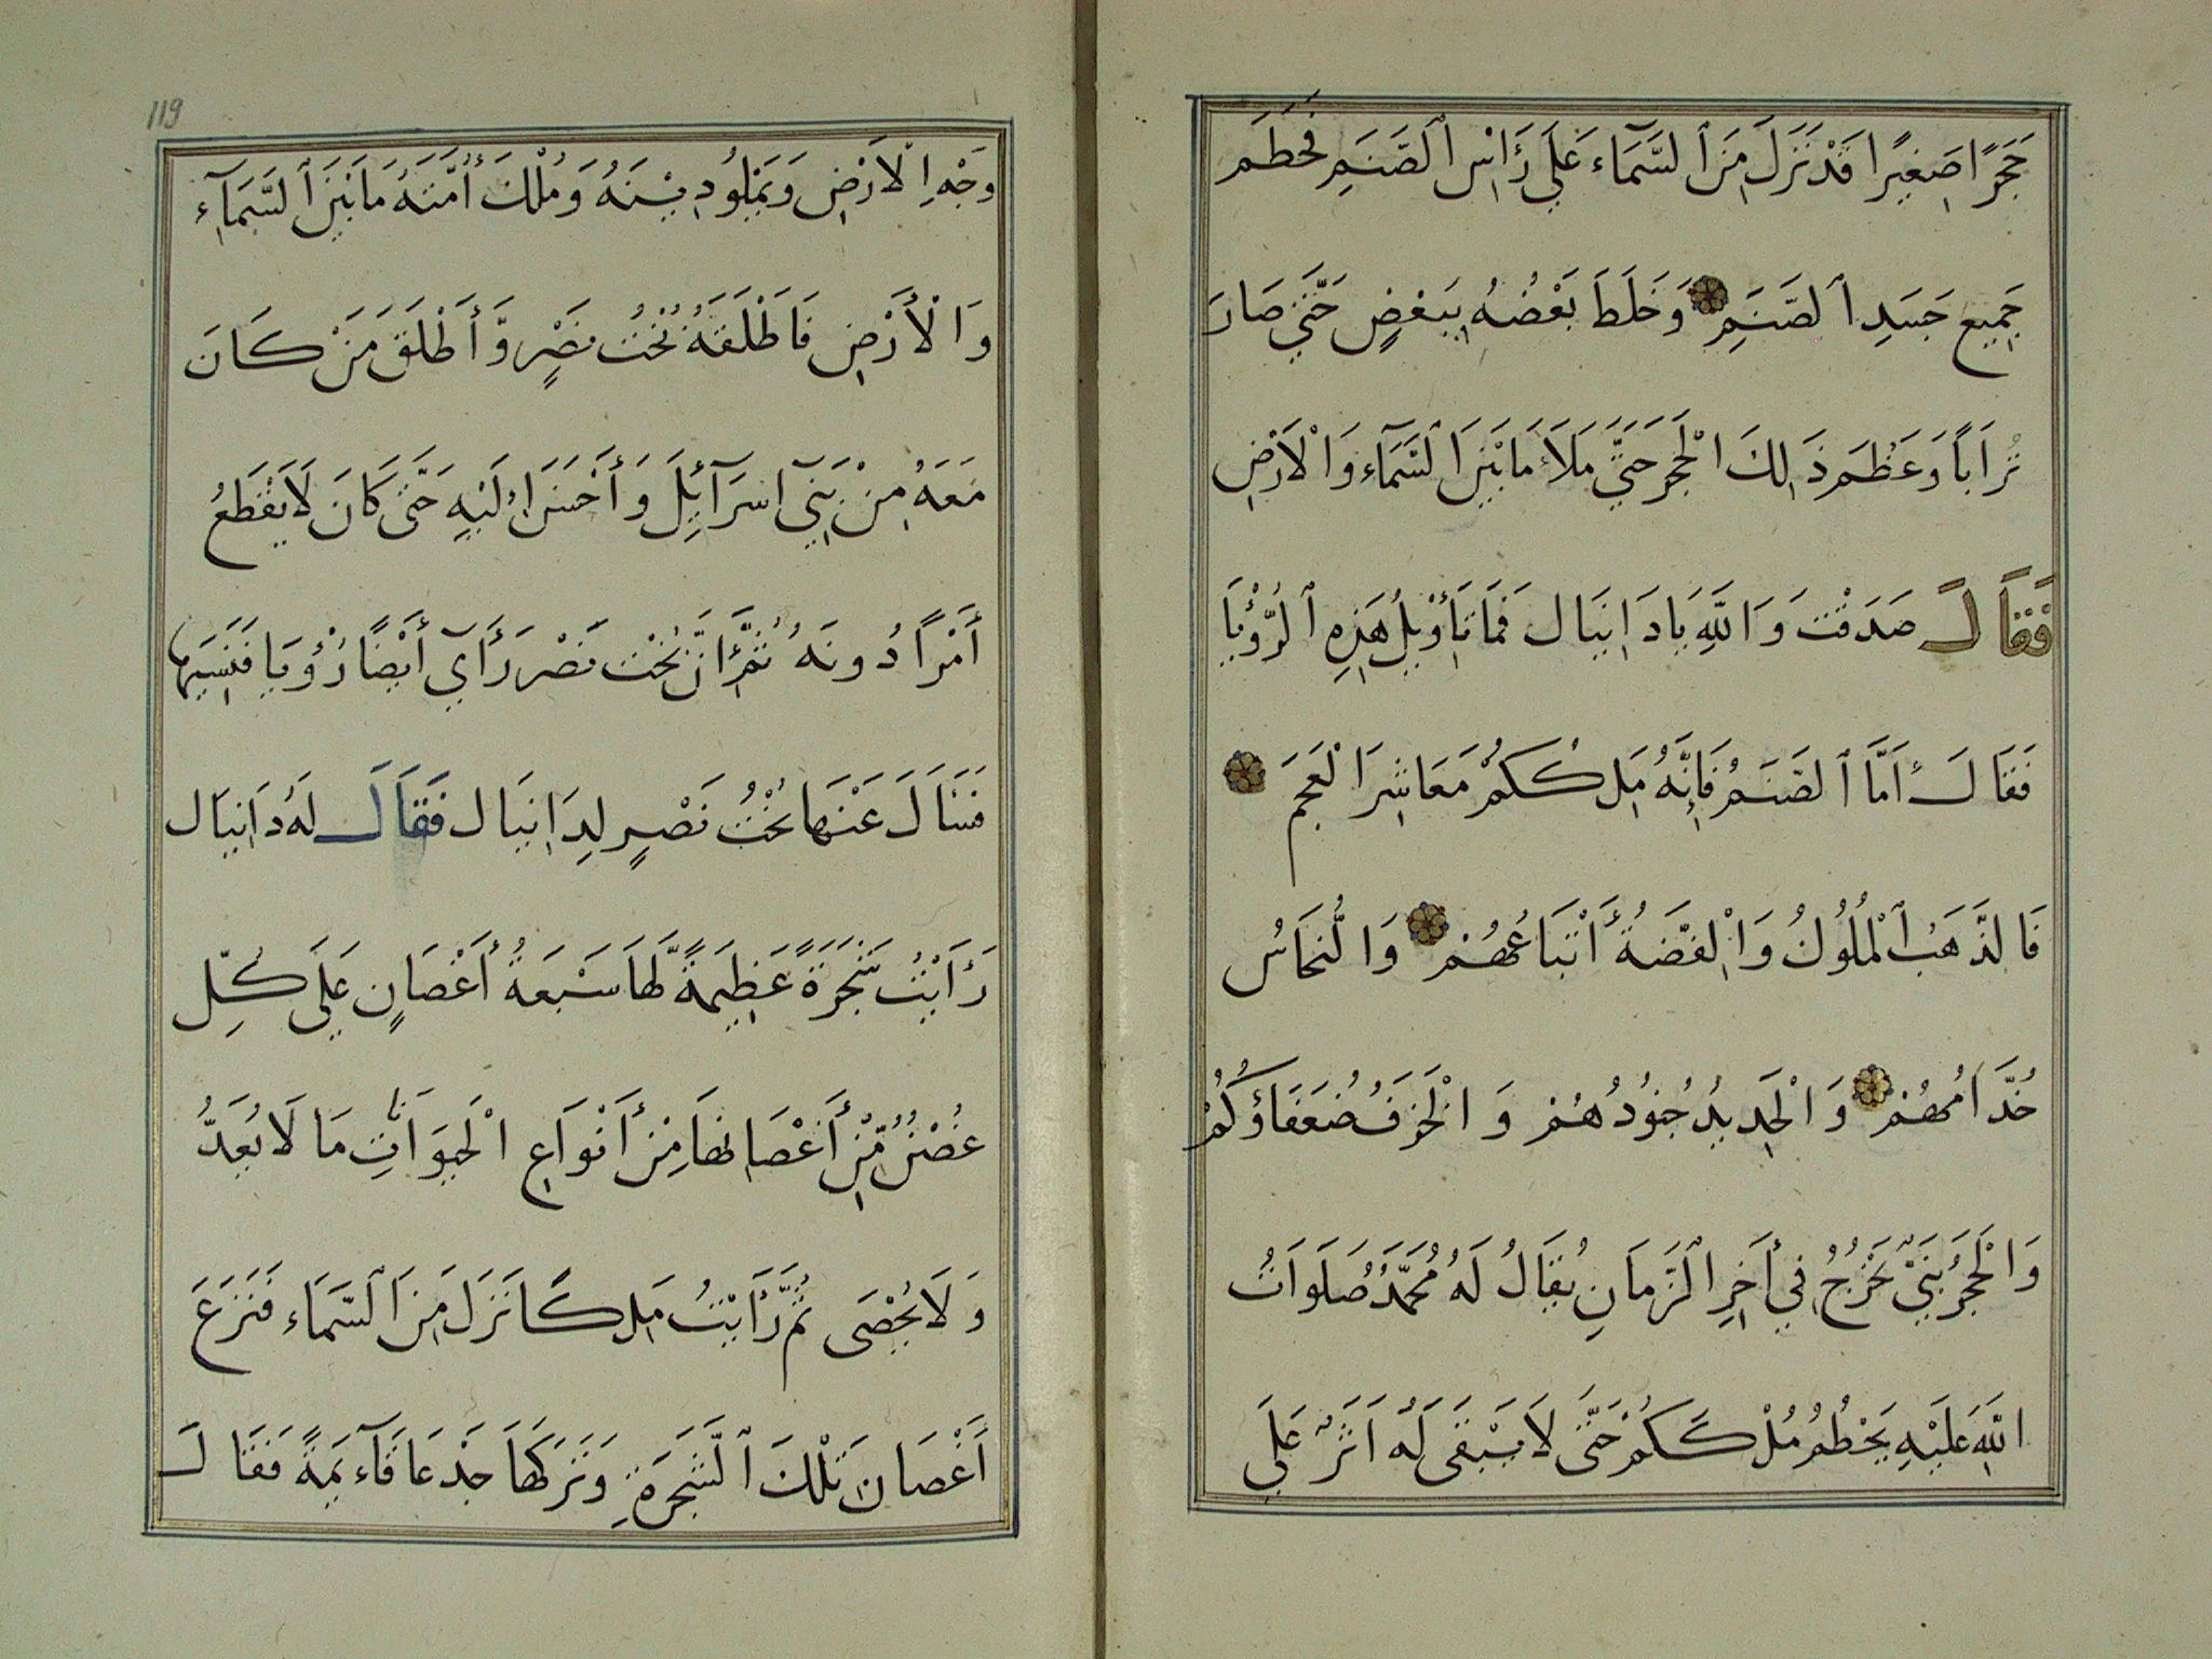 حَجَرًا صَغِيرًا قَدْ نَزَلَ مِنَ ٱلسَّمَآءِ عَلَي رَأْسِ ٱلصَّنَمِ فَحَطَمَ
جَمِيعَ جَسَدِ ٱلصَّنَمِ وَخَلَطَ بَعْضُهُ بِبَعْضٍ حَتَّي صَارَ
تُرَاباً وَعَظُمَ ذَلِكَ الْحَجَرُ حَتَّي مَلَأَ مَا بَيْنَ ٱلسَّمَآءِ وَالْاَرْضِ
فَقَالَ صَدَقْتَ وَاللّٰهِ يَا دَانِيَال فَمَا تَأْوِيلُ هَذِهِ ٱلرُّؤْيَا
فَقَالَ أَمَّا ٱلصَّنَمُ فَإِنَّهُ مَلِكُكُمْ مَعَاشِرَ الْعَجَمِ
فَالذَّهَبُ ٱلْمُلُوكُ وَالْفِضَّةُ أَتْبَاعُهُمْ وَالنُّحَاسُ
خُدَّامُهُمْ وَالْحَدِيدُ جُنُودُهُمْ وَالْخَزَفُ ضُعَفَاؤُكُمْ
وَالْحَجَرُ نَبِيٌّ يَخْرُجُ فِي أَخِرِ ٱلزَّمَانِ يُقَالُ لَهُ مُحَمَّدٌ صَلَوَاتُ
اللّٰهِ عَلَيْهِ يَحْطُمُ مُلْكَكُمْ حَتَّى لَا يَبْقَى لَهُ اَثَرٌ عَلَي
119
وَجْهِ الْاَرْضِ وَيَمْلُو دِيْنَهُ وَمُلْكَ أُمَّتِهُ مَا بَيْنَ ٱلسَّمَآءِ
وَالْأَرْضِ فَاَطْلَقَهُ بُخْتُ نَصْرٍ وَّأَطْلَقَ مَنْ كَانَ
مَعَهُ مِنْ بَنِيٓ اسرَآئِلَ وَأَحْسَنَ اِلَيْهِ حَتَّى كَانَ لَا يَقْطَعُ
أَمْرًا دُونَهُ ثُمَّ إِنَّ بُخْت نَصْر رَأَي أَيْضًا رُؤْيَا فَنَسِيَهَا
فَسَأَلَ عَنْهَا بُخْتُ نَصْرٍ لِدَانِيَال فَقَالَ لَهُ دَانِيَال
رَأَيْتُ شَجَرَةً عَظِيمَةً لَّهَا سَبْعَةُ أَغْصَانٍ عَلَي كُلِّ
غُصْنٍ مِّنْ أَغْصَانِهَا مِنْ أَنْوَاعِ الْحَيَوَانَاتِ مَا لَا يُعَدُّ
وَلَا يُحْصَى ثُمَّ رَأَيْتُ مَلِكًا نَزَلَ مِنَ ٱلسَّمَاءِ فَنَزَعَ
اَغْصَانَ تِلْكَ ٱلشَّجَرَةِ وَتَرَكَهَا جَذْعًا قَآءيِمَةً فَقَالَ